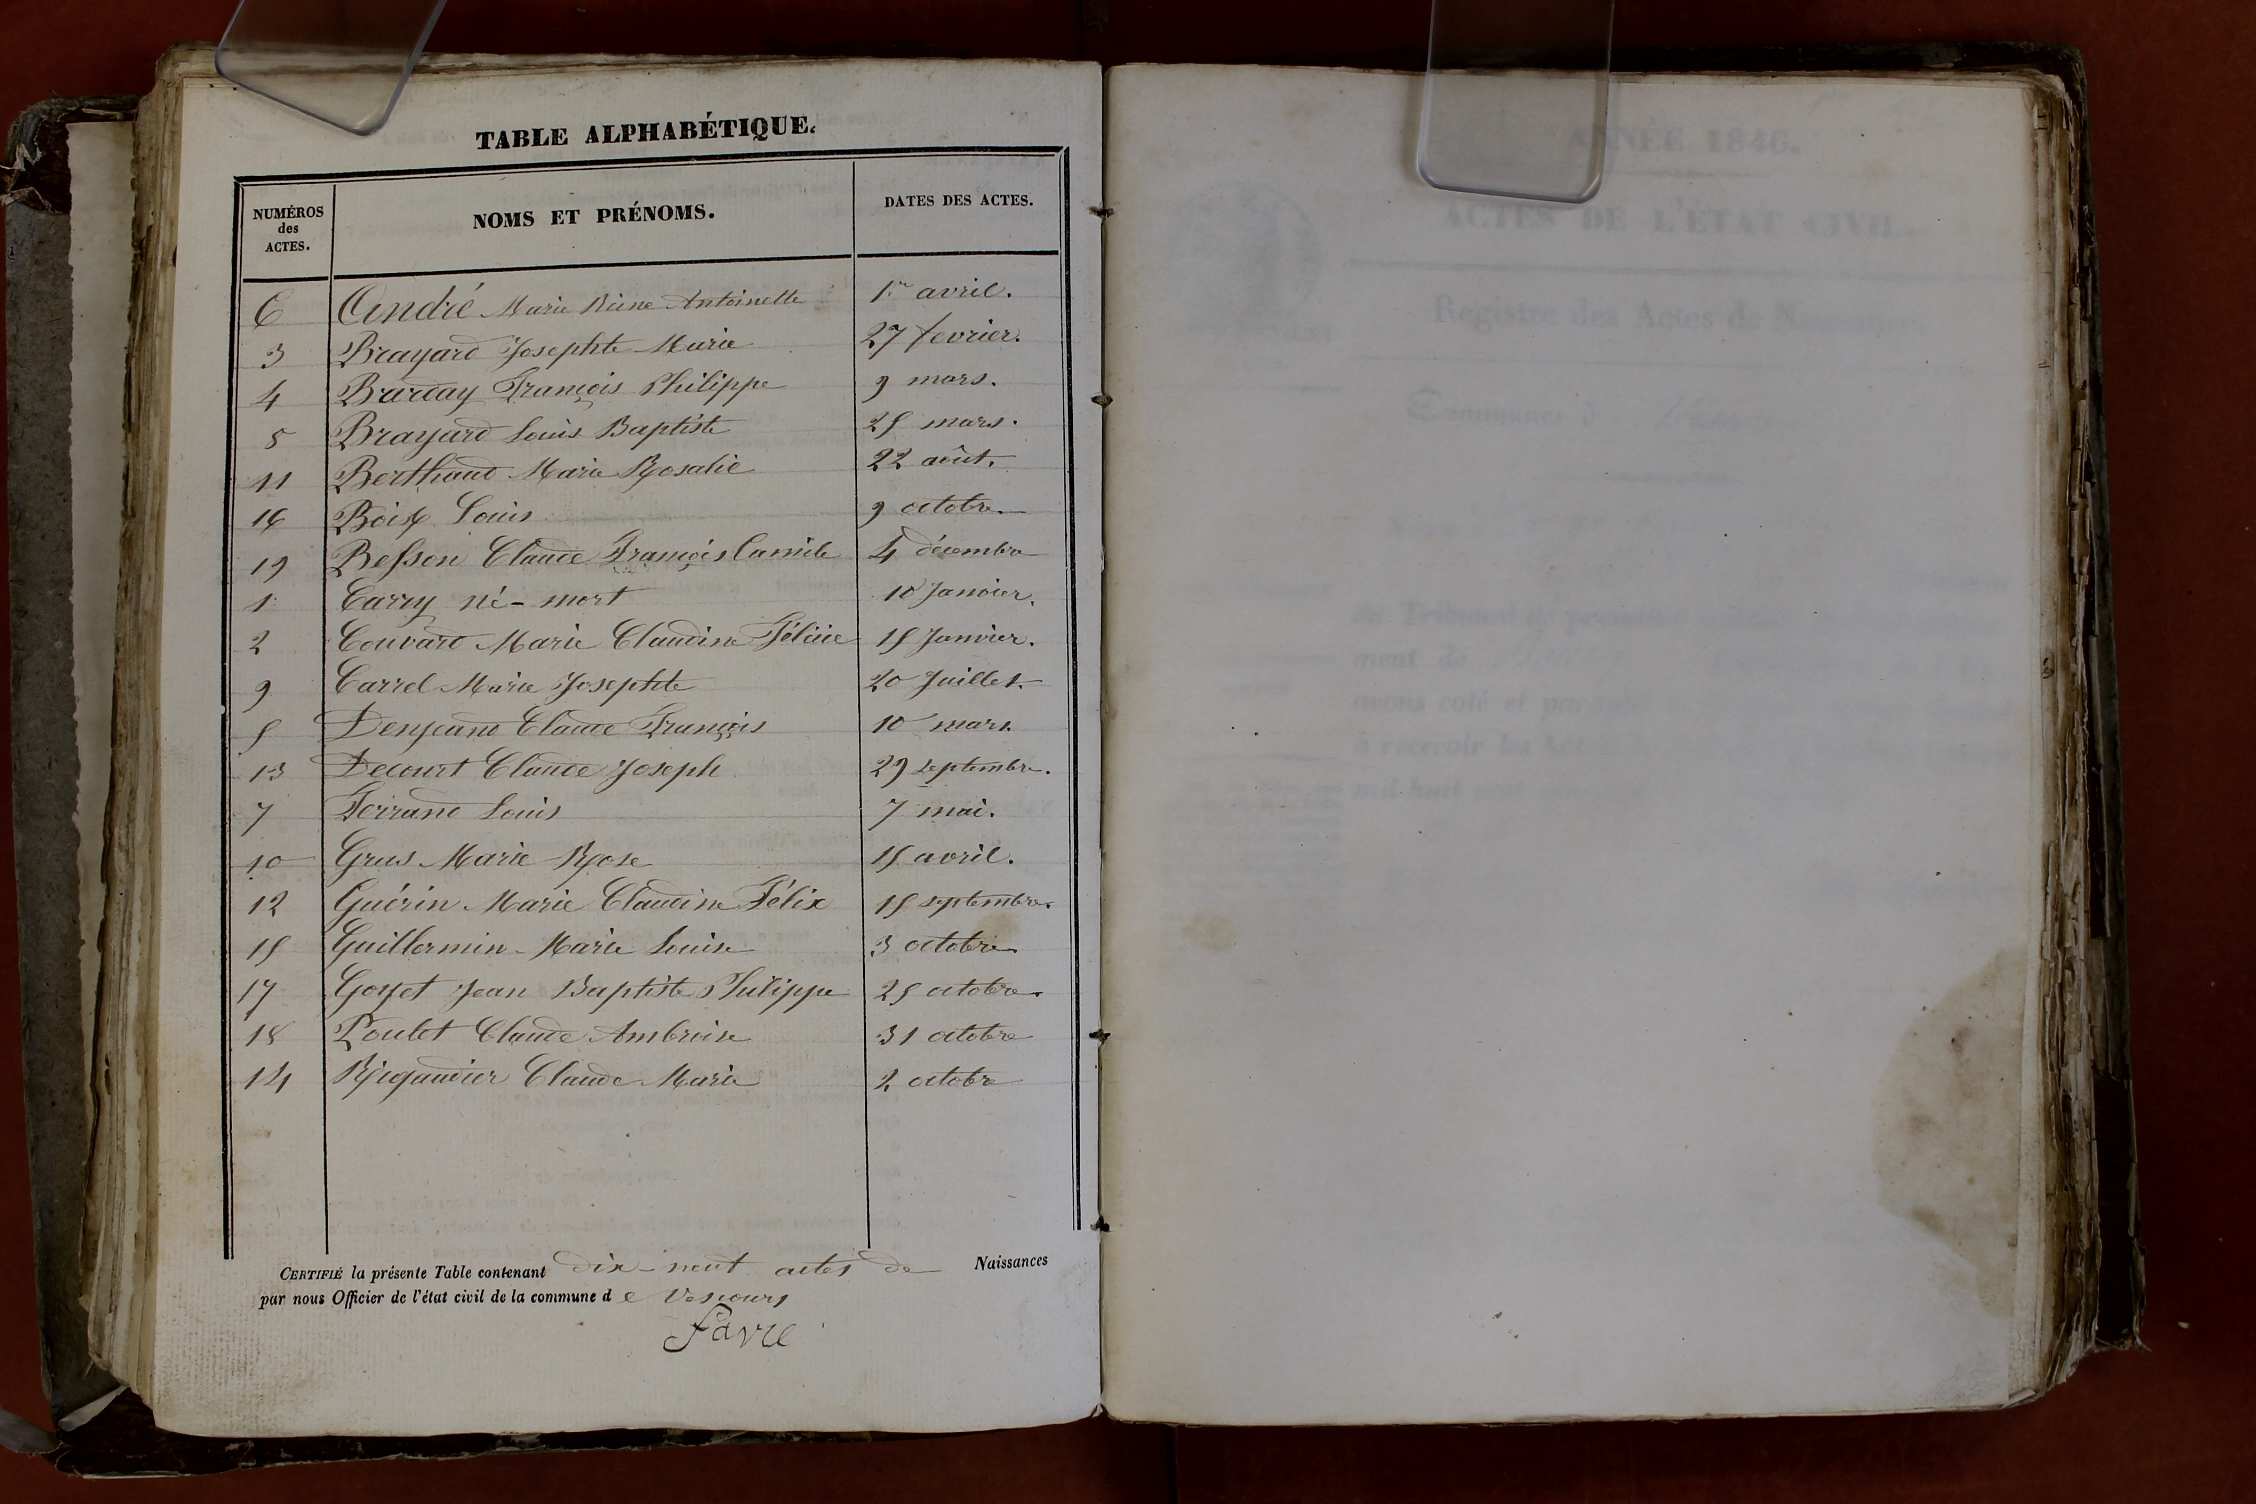 TABLE ALPHABÉTIQUE.
NUMÉROS des ACTES. NOMS ET PRÉNOMS. DATES DES ACTES.
6 André Marie Reine Antoinette 1er avril.
3 Brayard Josephte Marie 27 fevrier.
4 Barday François Philippe 9 mars.
5 Brayard Louis Baptiste 25 mars.
11 Berthaud Marie Rosalie 22 août.
16 Boix Louis 9 octobre
19 Besson Claude François Camile 4 décembre
1 Carry né-mort 10 Janvier.
2 Couvard Marie Claudine Félicie 15 Janvier.
9 Carrel Marie Josephte 20 Juillet
8 Denjeand Claude François 10 mars
13 Decourt Claude Joseph 29 septembre.
7 Ferrand Louis 7 mai.
10 Gras Marie Rose 15 avril.
12 Guérin Marie Claudine Félix 15 septembre.
15 Guillermin Marie Louise 3 octobre
17 Goyet Jean Baptiste Philippe 25 octobre
18 Poulet Claude Ambroise 31 octobre
14 Rigaudier Claude Marie 2 octobre
CERTIFIÉ la présente Table contenant dix-neuf actes de Naissances
par nous Officier de l'état civil de la commune de Vescours
Favre
ANNÉE 1846.
ACTES DE L'ÉTAT CIVIL.
Registre des Actes de Naissance